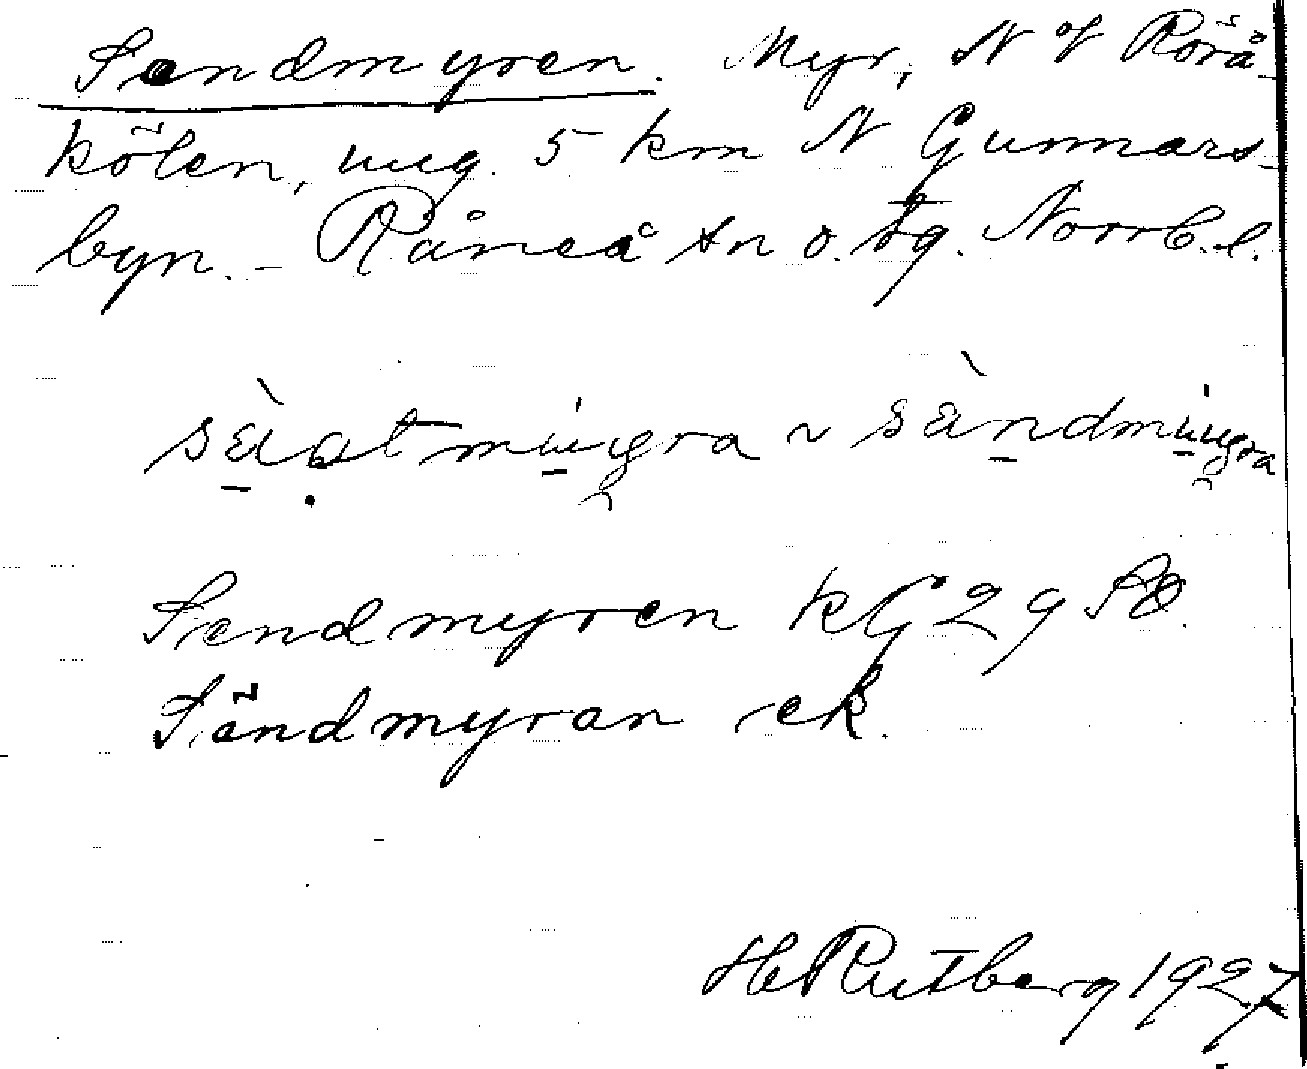 Sendmyren. Myr, N of Rörå-
kölen, ung. 5 km N Gunnars-
byn. - Råneå sn o. tg. Norrb. l.
sändmyra
Sendmyren kG 29 SO.
Sändmyran ek.
H Rutberg 1927